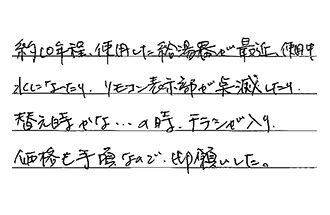 約10年程、使用した給湯器が最近、使用中
水になったり、リモコン表示部が点滅したり、
替え時かな…の時、チラシが入り、
価格も手頃なので、即願いした。